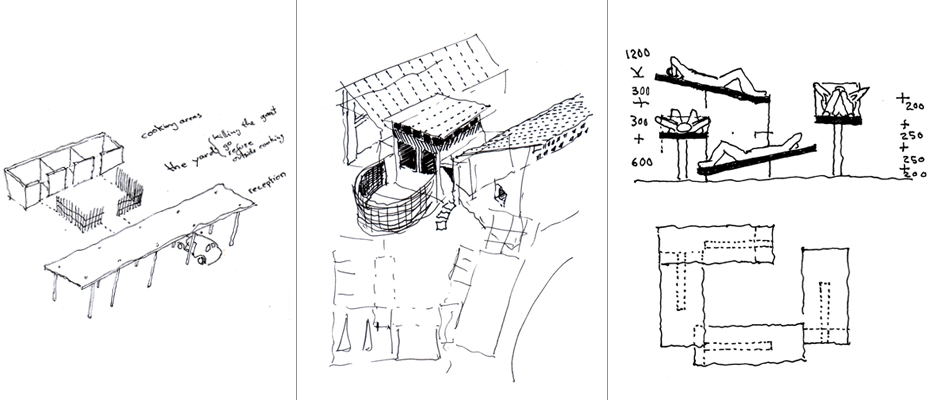 cooking areas
(killing the goat
the yard
outside
reception
1200
300
300
600
200
250
250
200